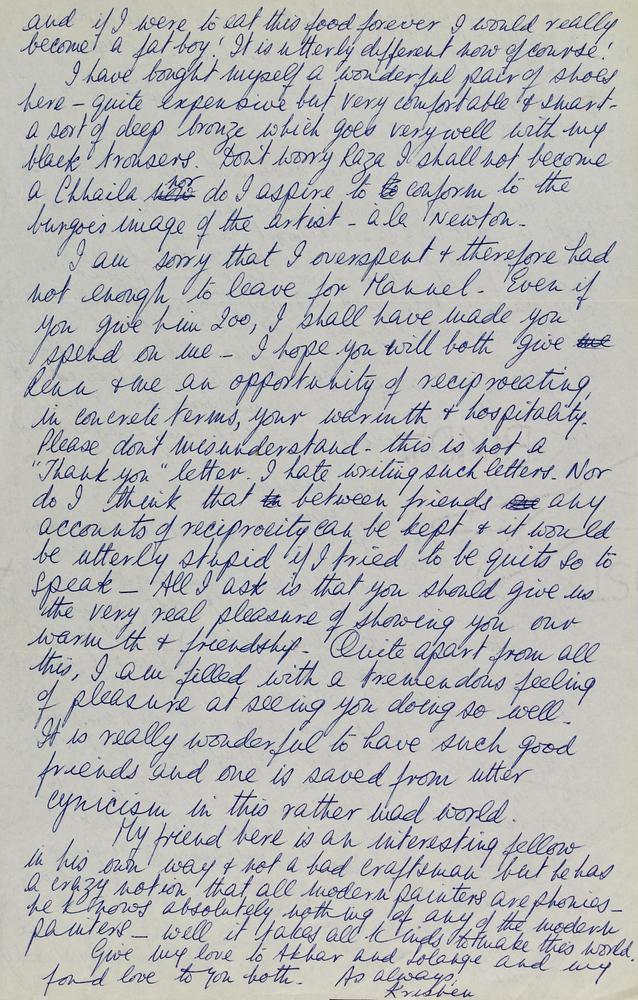 and if I were to eat this food forever I would really
become a fat boy! It is utterly different now of course!
I have bought myself a wonderful pair of shoes
here - quite expensive but very comfortable & smart -
a sort of deep bronze which goes very well with my
black trousers. Don't worry Raza I shall not become
a Chhaila nor do I aspire to conform to the
burgois image of the artist - a la Newton.
I am sorry that I overspent & therefore had
not enough to leave for Manuel. Even if
you give him 200, I shall have made you
spend on me - I hope you will both give
Renu & me an opportunity of reciprocating,
in concrete terms, your warmth & hospitality.
Please don't misunderstand - this is not a
"Thank you" letter. I hate writing such letters. Nor
do I think that between friends any
accounts of reciprocity can be kept & it would
be utterly stupid if I tried to be quits so to
speak - All I ask is that you should give us
the very real pleasure of showing you our
warmth & friendship. Quite apart from all
this, I am filled with a tremendous feeling
of pleasure at seeing you doing so well.
It is really wonderful to have such good
friends and one is saved from utter
cynicism in this rather mad world.
My friend here is an interesting fellow
in his own way & not a bad craftsman but he has
a crazy notion that all modern painters are phonies -
he knows absolutely nothing of any of the modern
painters - well it takes all kinds to make this world.
Give my love to Akbar and Solange and my
fond love to you both. As always,
Krishen